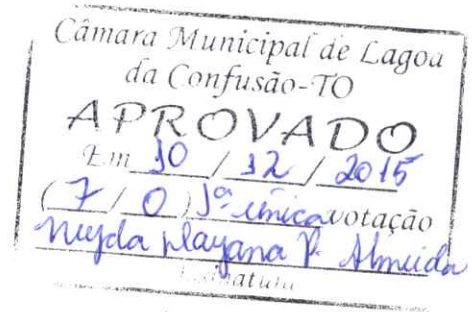 Câmara Municipal de Lagoa
da Confusão-TO
APROVADO
Em 10 / 12 / 2015
(7 / 0) 1ª única votação
Playana P. Almeida